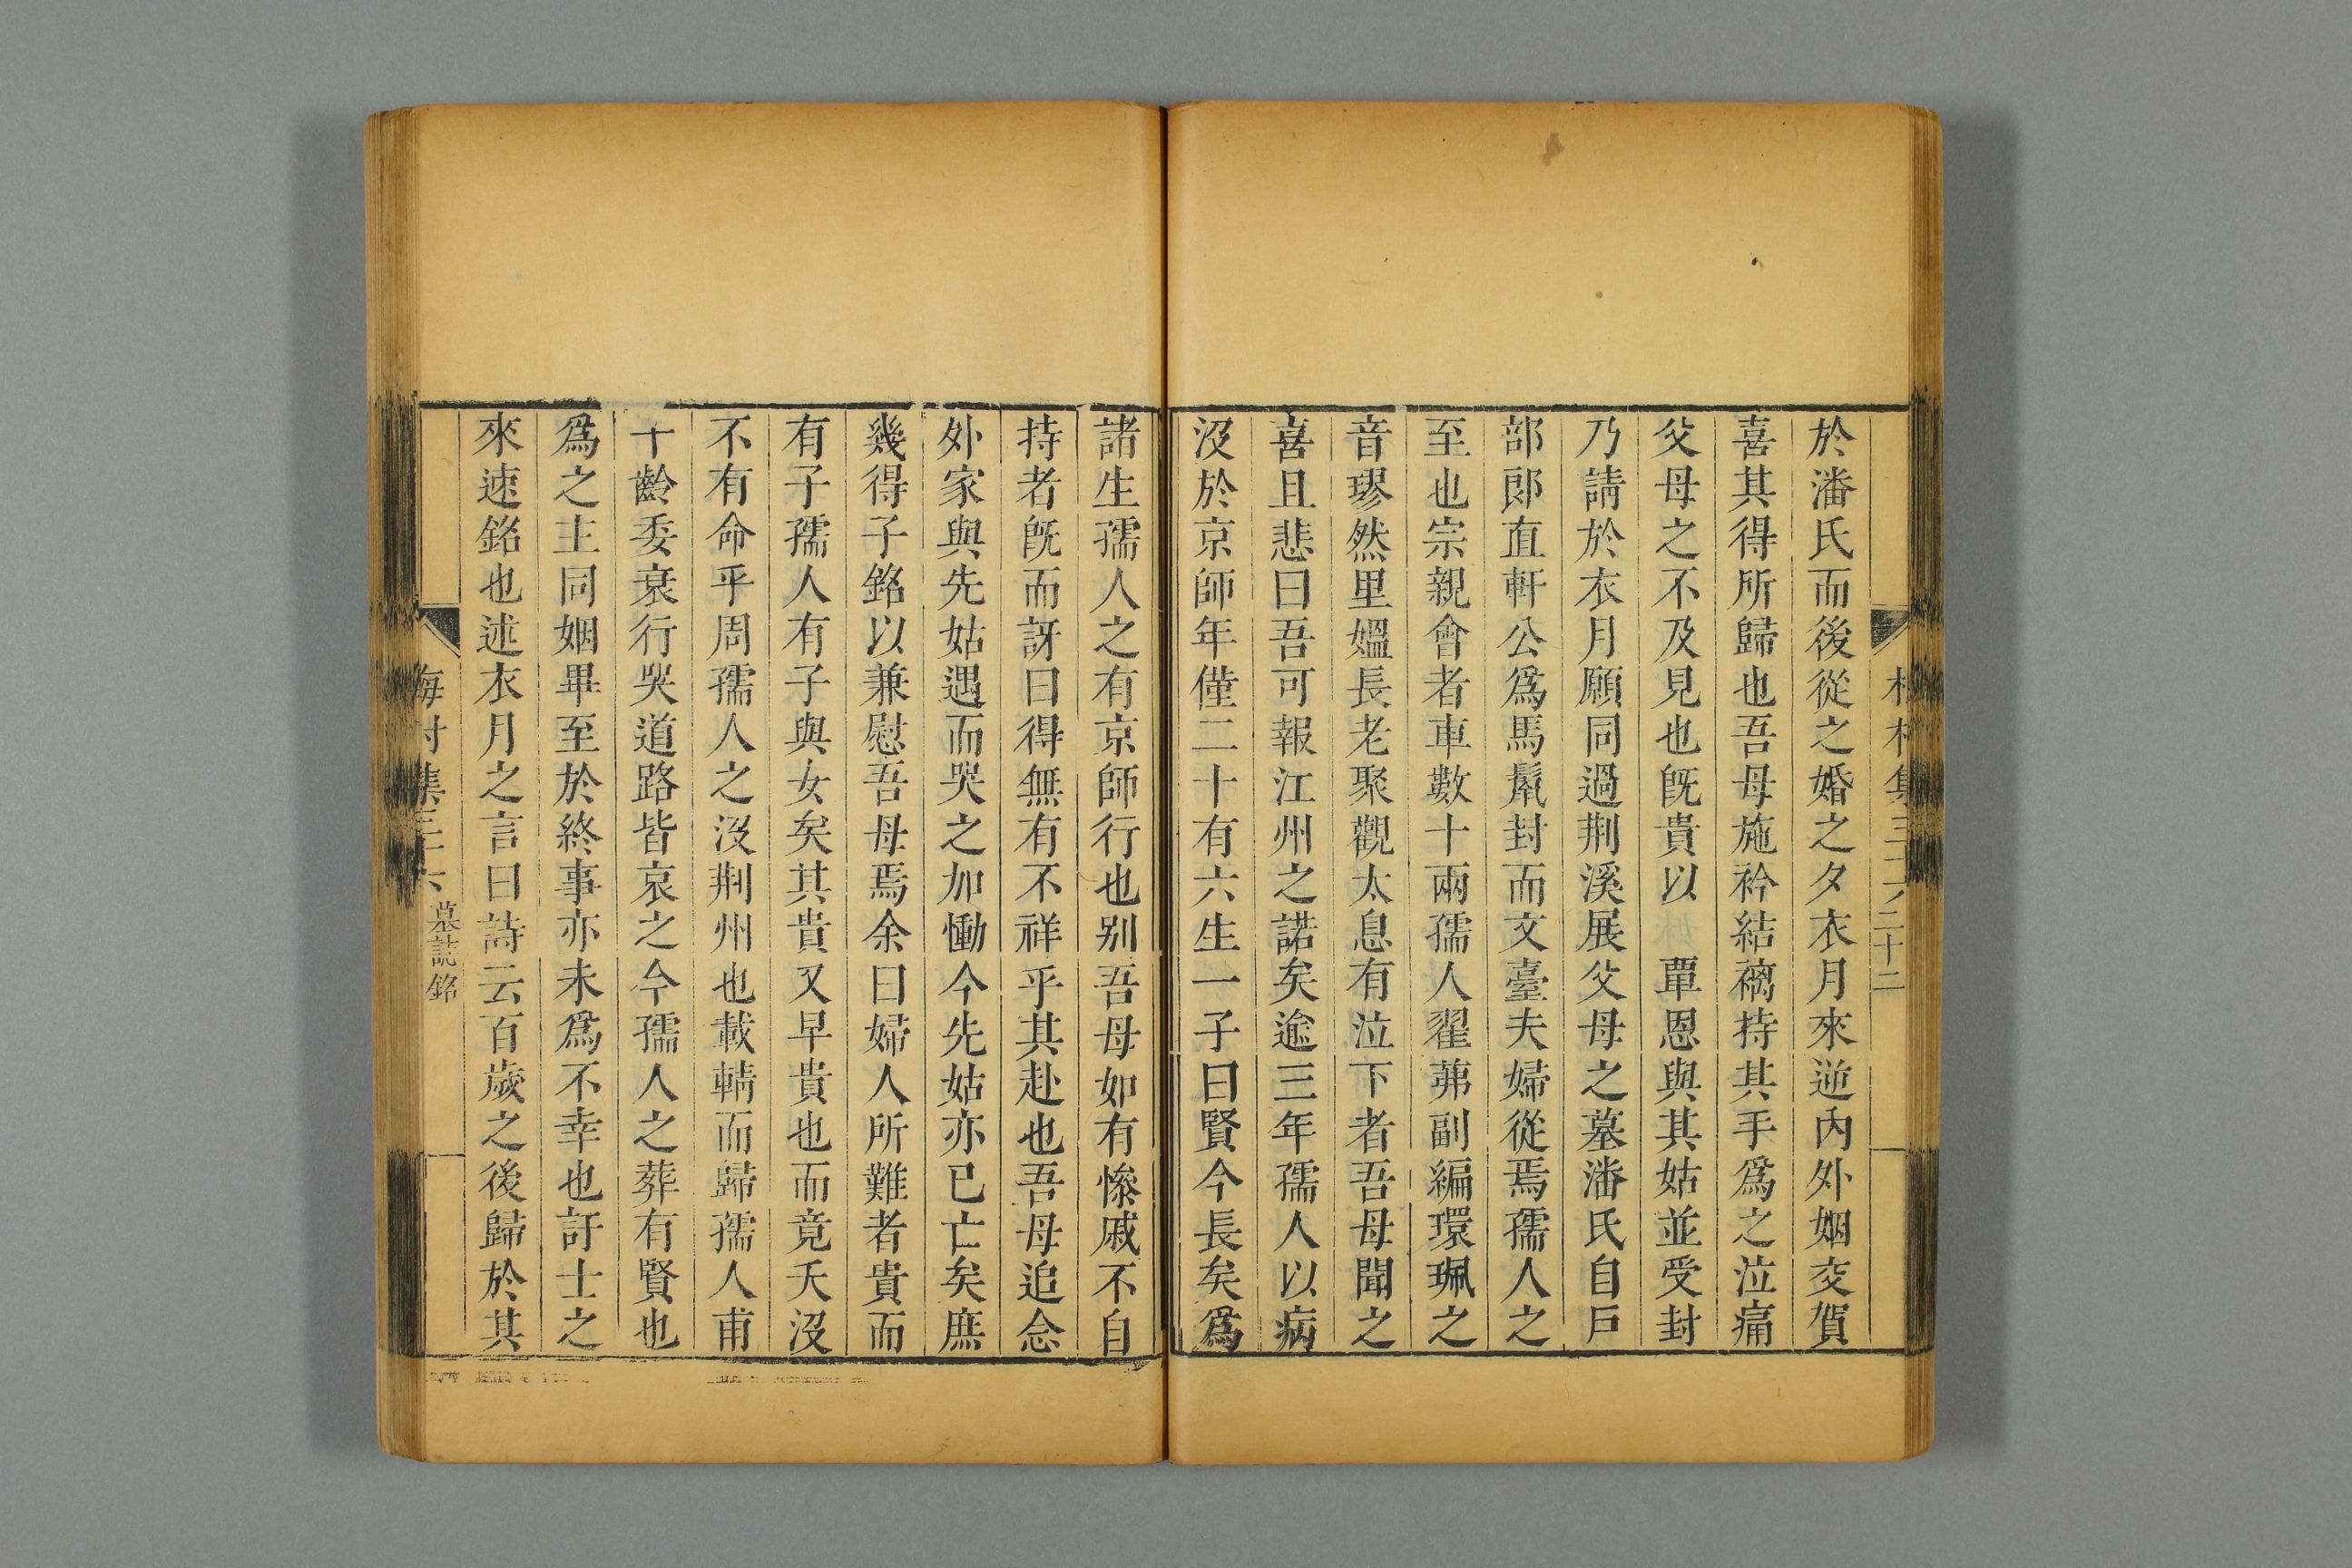 於潘氏而後從之婚之夕衣月來逆內外姻交賀
喜其得所歸也吾母施衿結褵持其手爲之泣痛
父母之不及見也旣貴以 覃恩與其姑並受封
乃請於衣月願同過荆溪展父母之墓潘氏自戶
部郞直軒公爲馬鬛封而文臺夫婦從焉孺人之
至也宗親會者車數十兩孺人翟茀副編環珮之
音璆然里媼長老聚觀太息有泣下者吾母聞之
喜且悲曰吾可報江州之諾矣逾三年孺人以病
沒於京師年僅二十有六生一子曰賢今長矣爲
諸生孺人之有京師行也别吾母如有慘戚不自
持者旣而訝曰得無有不祥乎其赴也吾母追念
外家與先姑遇而哭之加慟今先姑亦已亡矣庶
幾得子銘以兼慰吾母焉余曰婦人所難者貴而
有子孺人有子與女矣其貴又早貴也而竟夭沒
不有命乎周孺人之沒荆州也載輤而歸孺人甫
十齡委衰行哭道路皆哀之今孺人之葬有賢也
爲之主同姻畢至於終事亦未爲不幸也訏士之
來速銘也述衣月之言曰詩云百歲之後歸於其
梅村集三十六 墓誌銘
二十二